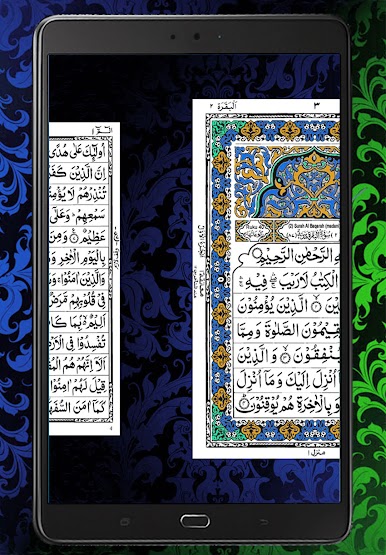 ٣
اَلْبَقَرَة ٢
(2) Surah Al Baqarah (madani
ـهِ الرَّحْمٰنِ الرَّحِيْمِ
الْكِتٰبُ لَا رَيْبَ ۛ فِيْهِ ۛ
الَّذِيْنَ يُؤْمِنُوْنَ
ـقِيْمُوْنَ الصَّلٰوةَ وَمِمَّا
ـنْفِقُوْنَ ۝ وَالَّذِيْنَ
اُنْزِلَ اِلَيْكَ وَمَآ اُنْزِلَ
وَبِالْاٰخِرَةِ هُمْ يُوْقِنُوْنَ
منزل ١
اُولٰٓئِكَ عَلٰى هُدًى
اِنَّ الَّذِيْنَ كَفَـ
تُنْذِرْهُمْ لَا يُؤْمِـ
سَمْعِهِمْ ؕ وَعَلٰٓى
عَظِيْمٌ ۝ وَمِنَ
بِالْيَوْمِ الْاٰخِرِ وَ
وَالَّذِيْنَ اٰمَنُوْا ۚ وَ
فِيْ قُلُوْبِهِمْ مَّرَضٌ
اَلِيْمٌ ۢ بِمَا كَا
تُفْسِدُوْا فِي الْاَرْ
اَلَآ اِنَّهُمْ هُمُ الْمُـ
قِيْلَ لَهُمْ اٰمِنُوْا
كَمَآ اٰمَنَ السُّفَهَـ